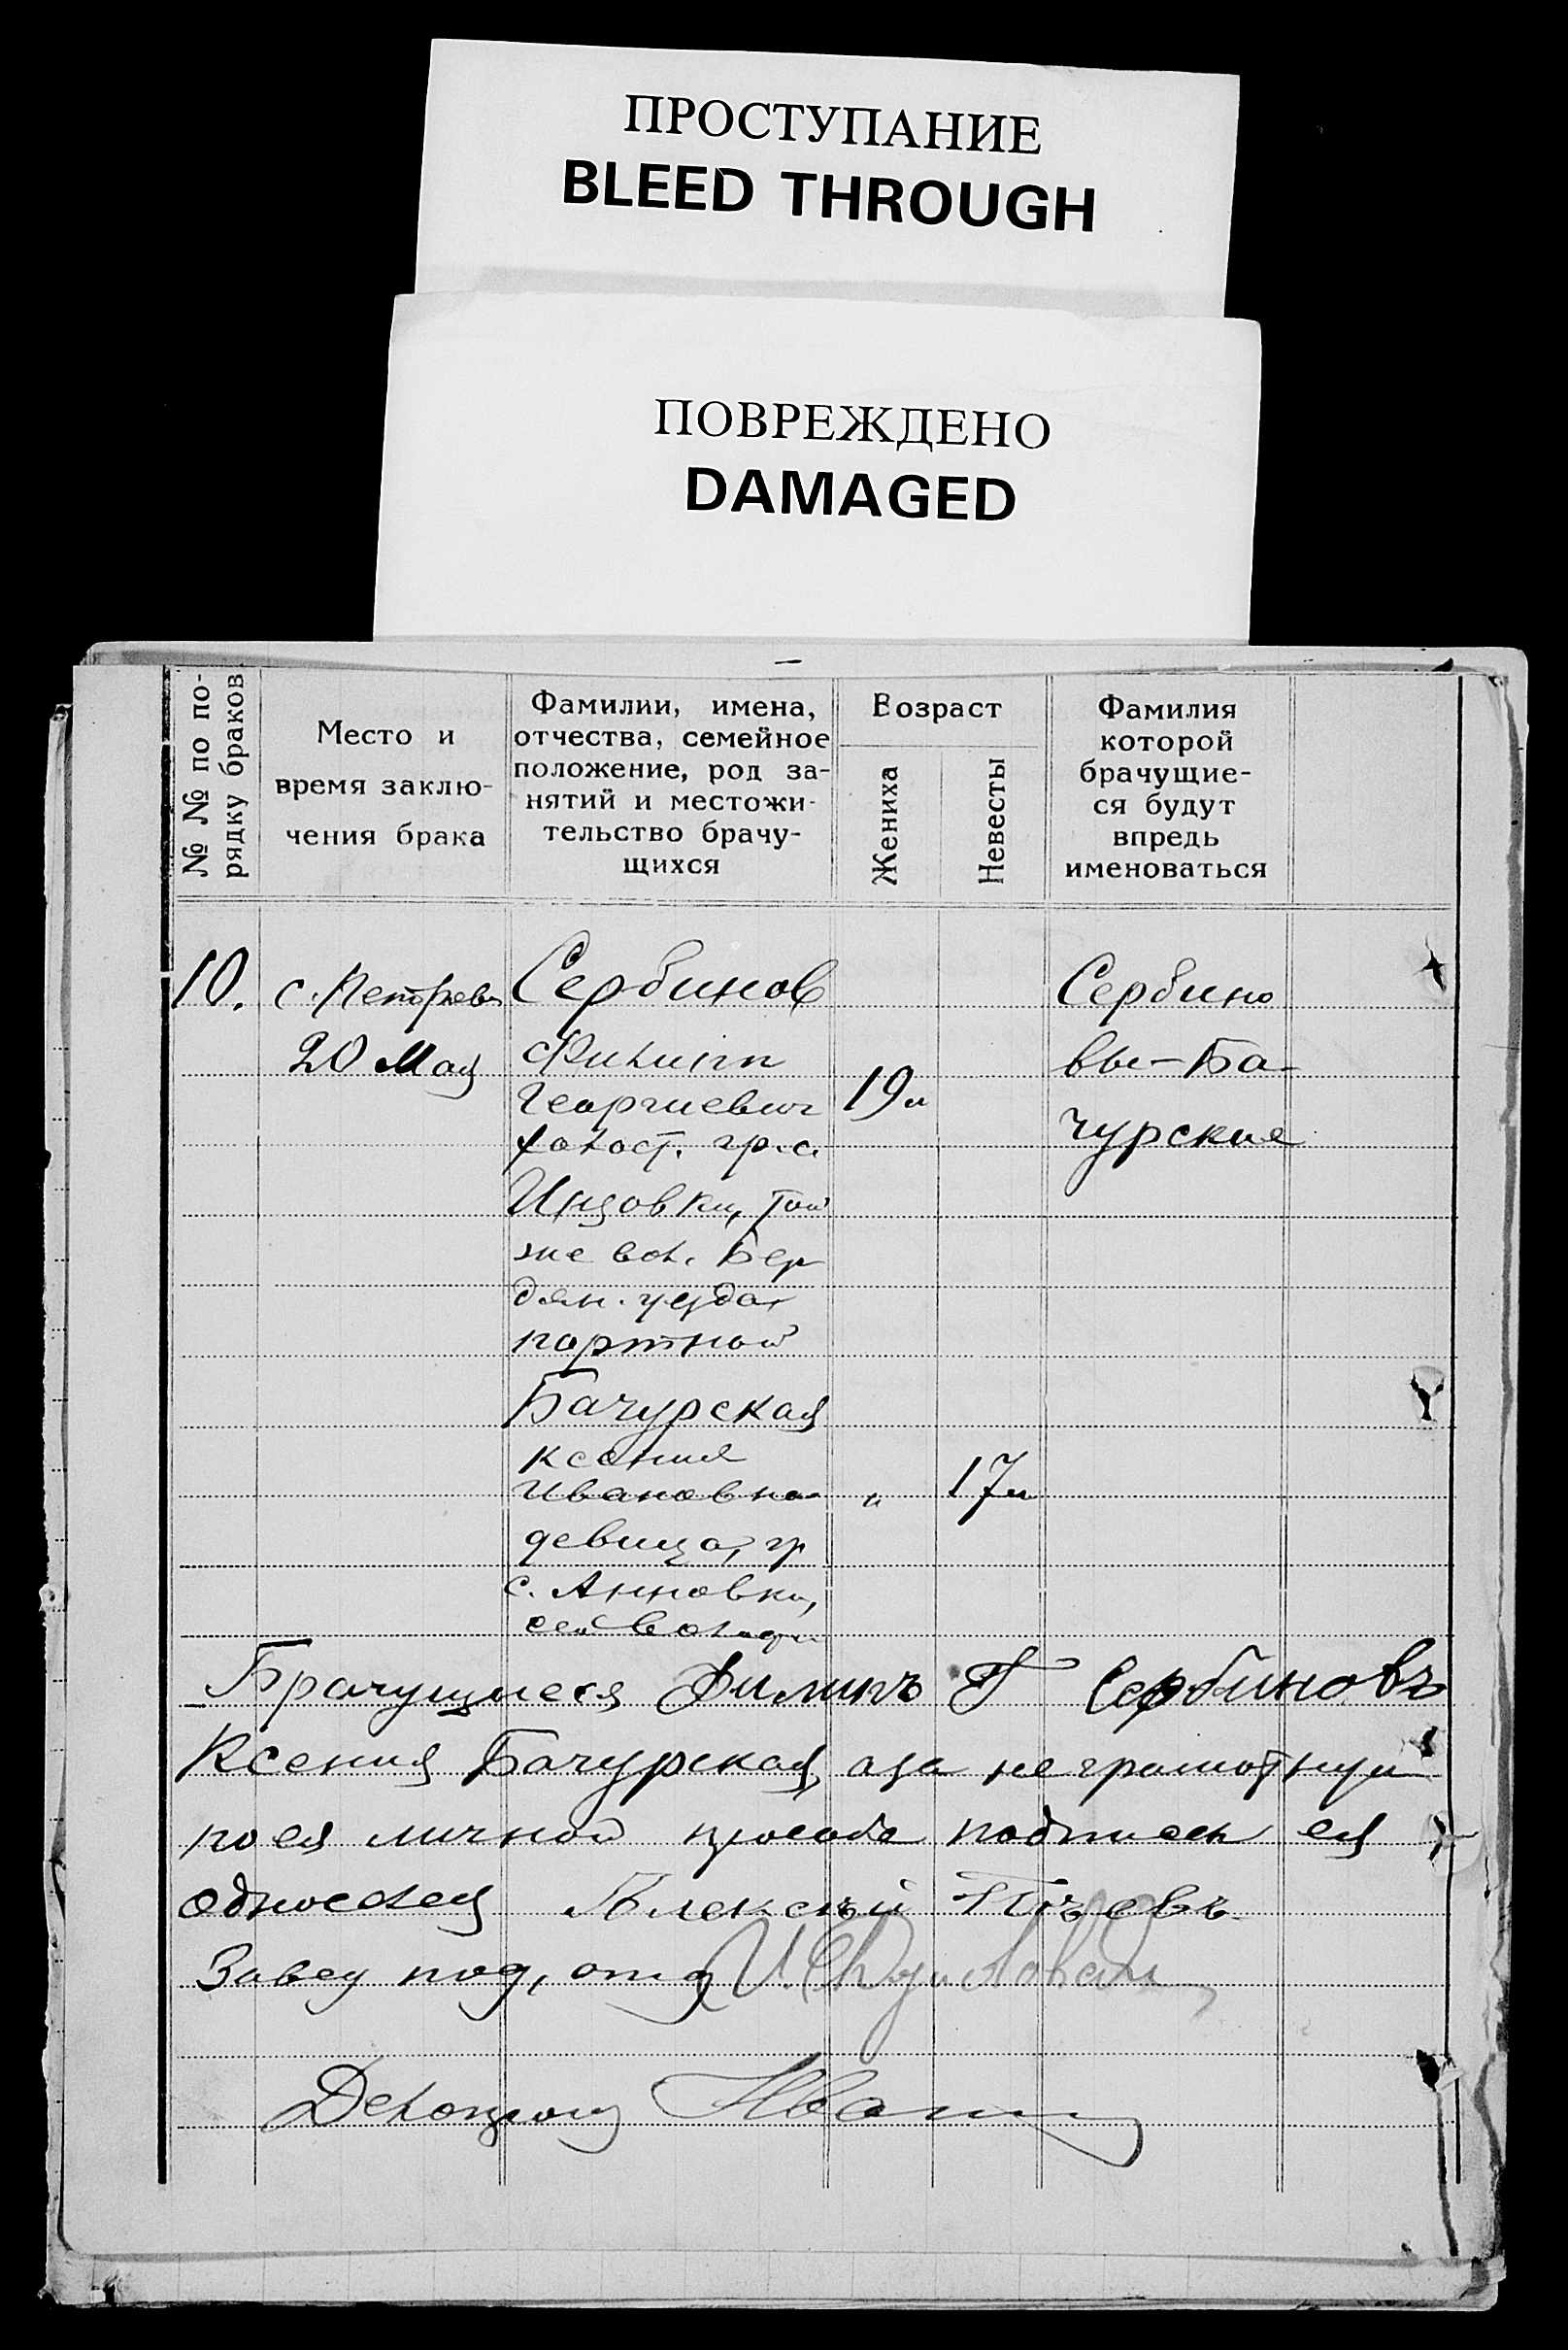 ПРОСТУПАНИЕ
BLEED THROUGH
ПОВРЕЖДЕНО
DAMAGED
№ № по по-
рядку браков
Место и
время заклю-
чения брака
Фамилии, имена,
отчества, семейное
положение, род за-
нятий и местожи-
тельство брачу-
щихся
Возраст
Жениха
Невесты
Фамилия
которой
брачущие-
ся будут
впредь
именоваться
10.
с. Петровка
20 Мая
Сербинов
Филипп
Георгиевич
холост. гр. с.
Инзовки, той
же вол. Бер
дян. уезда
портной
19 л
Сербино
вы-Ба-
чурские
Бачурская
Ксения
Ивановна
девица, гр
с. Анновки,
сей волости
"
17 л
Брачущиеся Филипъ Г Сербиновъ
Ксения Бачурская, а за неграмотную
по ея личной просьбе подписал ея
односелец Алексѣй
Завед под, отд
Делопроиз Иван